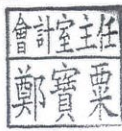 會計室主任
鄭寶粟